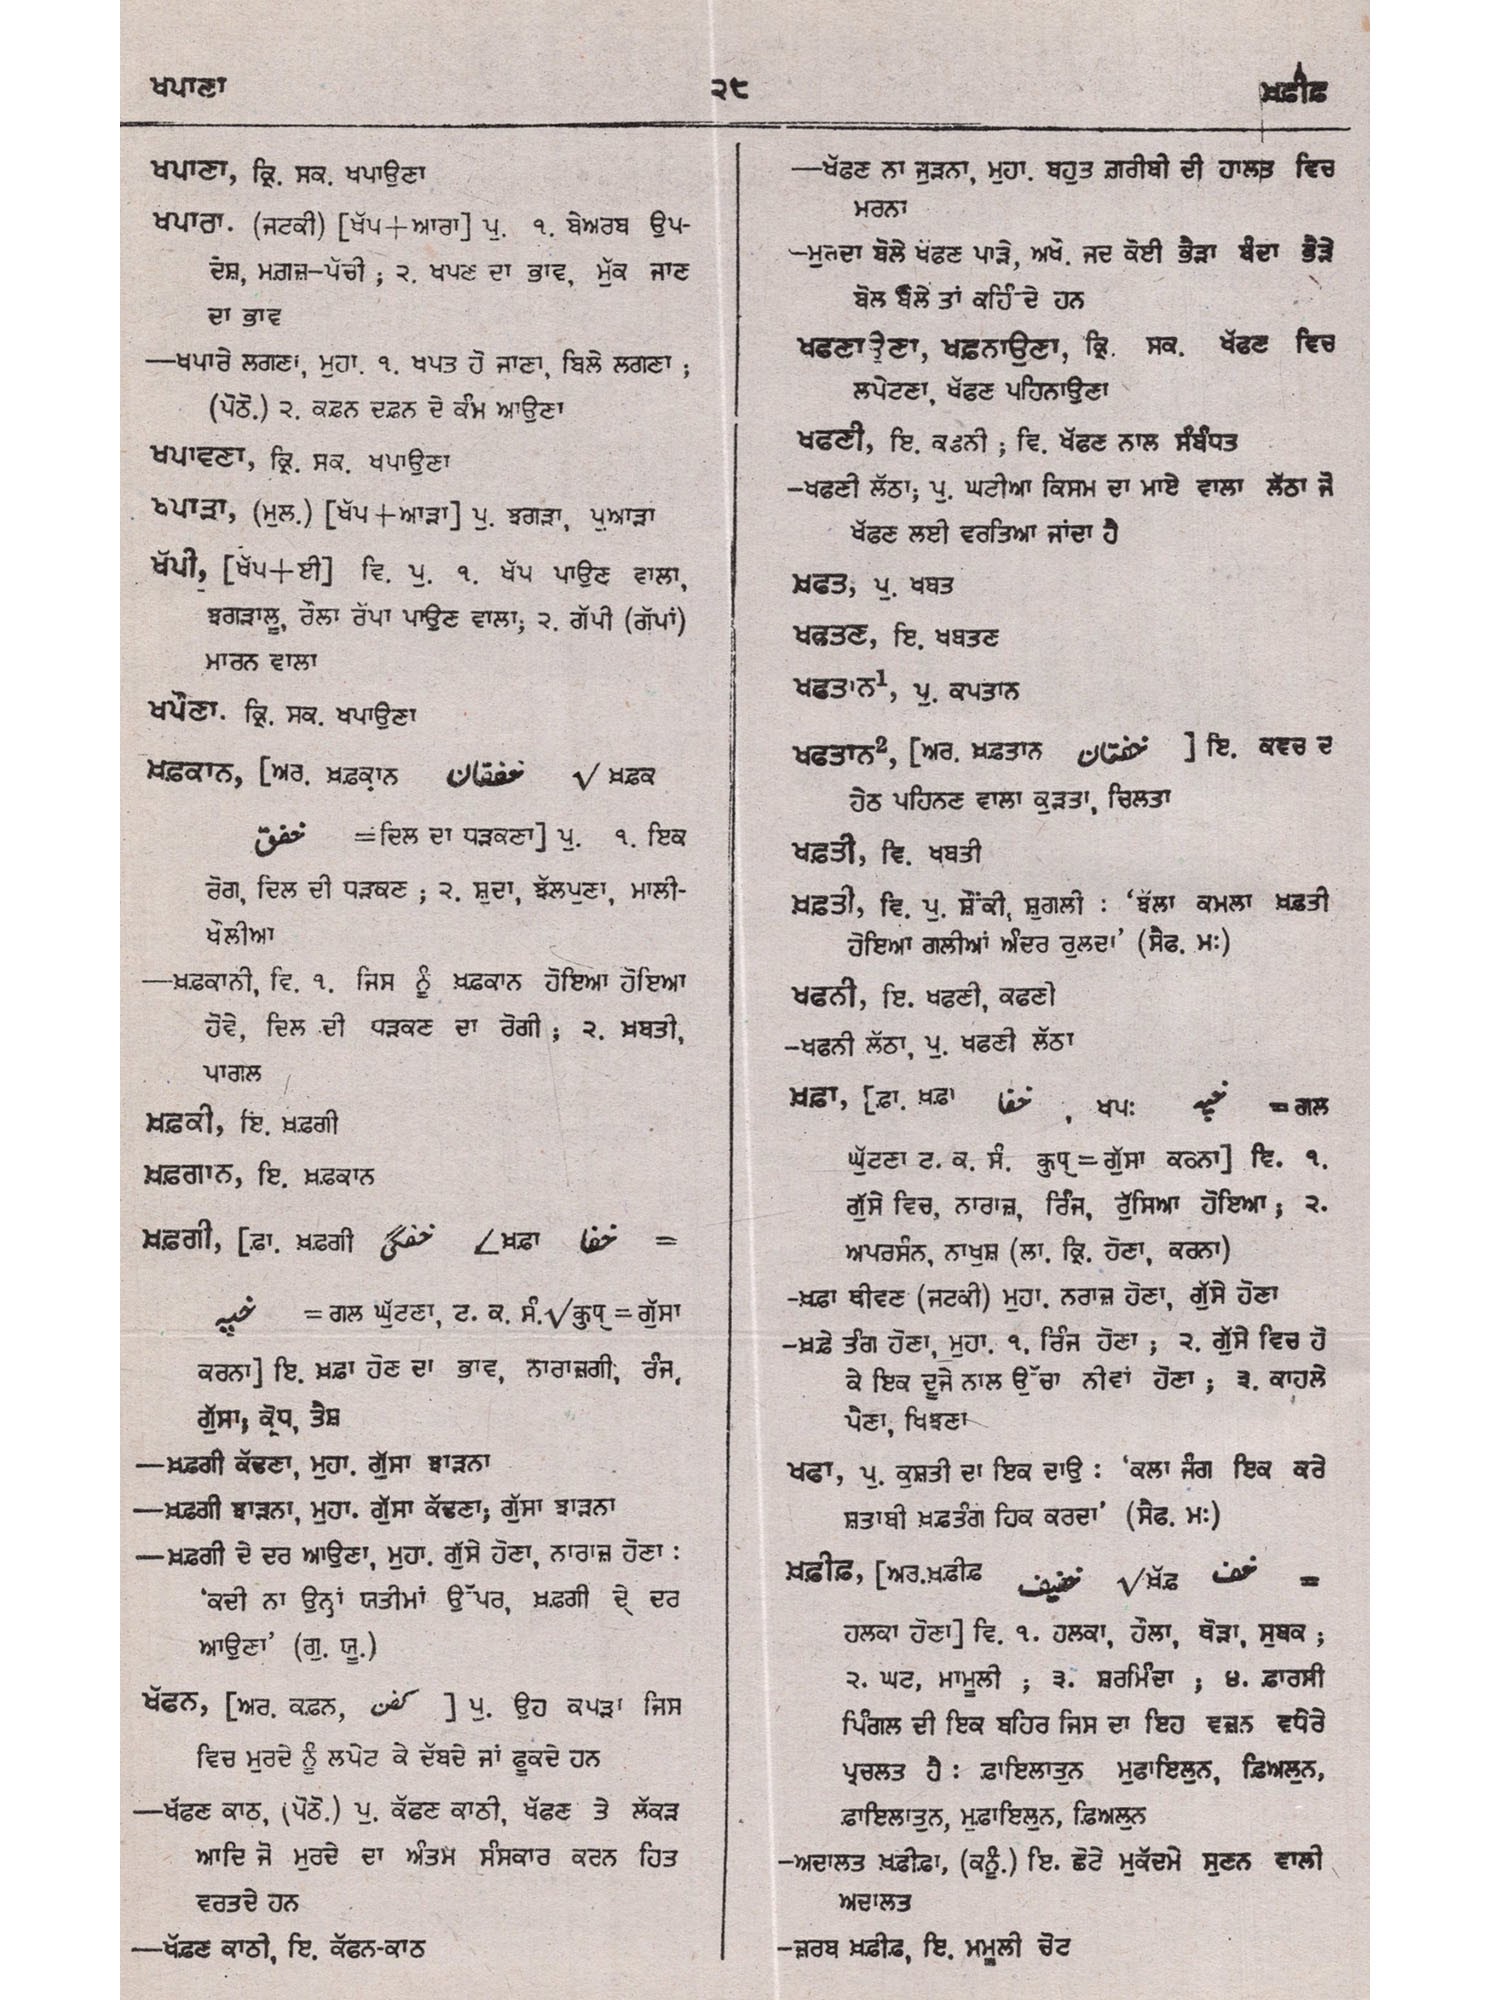 ਖਪਾਣਾ
੨੯
ਖ਼ਫ਼ੀਫ਼
ਖਪਾਣਾ, ਕ੍ਰਿ. ਸਕ. ਖਪਾਉਣਾ
ਖਪਾਰਾ. (ਜਟਕੀ) [ਖੱਪ+ਆਰਾ] ਪੁ. ੧. ਬੇਅਰਥ ਉਪ-
ਦੇਸ਼, ਮਗਜ਼-ਪੱਚੀ ; ੨. ਖਪਣ ਦਾ ਭਾਵ, ਮੁੱਕ ਜਾਣ
ਦਾ ਭਾਵ
—ਖਪਾਰੇ ਲਗਣਾ, ਮੁਹਾ. ੧. ਖਪਤ ਹੋ ਜਾਣਾ, ਬਿਲੇ ਲਗਣਾ ;
(ਪੋਠੋ.) ੨. ਕਫ਼ਨ ਦਫ਼ਨ ਦੇ ਕੰਮ ਆਉਣਾ
ਖਪਾਵਣਾ, ਕ੍ਰਿ. ਸਕ. ਖਪਾਉਣਾ
ਖਪਾੜਾ, (ਮੁਲ.) [ਖੱਪ+ਆੜਾ] ਪੁ. ਝਗੜਾ, ਪੁਆੜਾ
ਖੱਪੀ, [ਖੱਪ+ਈ] ਵਿ. ਪੁ. ੧. ਖੱਪ ਪਾਉਣ ਵਾਲਾ,
ਝਗੜਾਲੂ, ਰੌਲਾ ਰੱਪਾ ਪਾਉਣ ਵਾਲਾ; ੨. ਗੱਪੀ (ਗੱਪਾਂ)
ਮਾਰਨ ਵਾਲਾ
ਖਪੌਣਾ. ਕ੍ਰਿ. ਸਕ. ਖਪਾਉਣਾ
ਖ਼ਫ਼ਕਾਨ, [ਅਰ. ਖ਼ਫ਼ਕ਼ਾਨ خفقان √ ਖ਼ਫ਼ਕ
خفق =ਦਿਲ ਦਾ ਧੜਕਣਾ] ਪੁ. ੧. ਇਕ
ਰੋਗ, ਦਿਲ ਦੀ ਧੜਕਣ ; ੨. ਸ਼ੁਦਾ, ਝੱਲਪੁਣਾ, ਮਾਲੀ-
ਖੌਲੀਆ
—ਖ਼ਫ਼ਕਾਨੀ, ਵਿ. ੧. ਜਿਸ ਨੂੰ ਖ਼ਫ਼ਕਾਨ ਹੋਇਆ ਹੋਇਆ
ਹੋਵੇ, ਦਿਲ ਦੀ ਧੜਕਣ ਦਾ ਰੋਗੀ ; ੨. ਖ਼ਬਤੀ,
ਪਾਗਲ
ਖ਼ਫ਼ਕੀ, ਇ. ਖ਼ਫ਼ਗੀ
ਖ਼ਫ਼ਗਾਨ, ਇ. ਖ਼ਫ਼ਕਾਨ
ਖ਼ਫ਼ਗੀ, [ਫ਼ਾ. ਖ਼ਫ਼ਗੀ خفگی ∠ਖ਼ਫ਼ਾ خفا =
خپه =ਗਲ ਘੁੱਟਣਾ, ਟ. ਕ. ਸੰ.√ਕ੍ਰੁਧ੍=ਗੁੱਸਾ
ਕਰਨਾ] ਇ. ਖ਼ਫ਼ਾ ਹੋਣ ਦਾ ਭਾਵ, ਨਾਰਾਜ਼ਗੀ, ਰੰਜ,
ਗੁੱਸਾ; ਕ੍ਰੋਧ, ਤੈਸ਼
—ਖ਼ਫ਼ਗੀ ਕੱਢਣਾ, ਮੁਹਾ. ਗੁੱਸਾ ਝਾੜਨਾ
—ਖ਼ਫ਼ਗੀ ਝਾੜਨਾ, ਮੁਹਾ. ਗੁੱਸਾ ਕੱਢਣਾ; ਗੁੱਸਾ ਝਾੜਨਾ
—ਖ਼ਫ਼ਗੀ ਦੇ ਦਰ ਆਉਣਾ, ਮੁਹਾ. ਗੁੱਸੇ ਹੋਣਾ, ਨਾਰਾਜ਼ ਹੋਣਾ :
‘ਕਦੀ ਨਾ ਉਨ੍ਹਾਂ ਯਤੀਮਾਂ ਉੱਪਰ, ਖ਼ਫ਼ਗੀ ਦੇ ਦਰ
ਆਉਣਾ’ (ਗੁ. ਯੂ.)
ਖੱਫਨ, [ਅਰ. ਕਫ਼ਨ, كفن ] ਪੁ. ਉਹ ਕਪੜਾ ਜਿਸ
ਵਿਚ ਮੁਰਦੇ ਨੂੰ ਲਪੇਟ ਕੇ ਦੱਬਦੇ ਜਾਂ ਫੂਕਦੇ ਹਨ
—ਖੱਫਣ ਕਾਠ, (ਪੋਠੋ.) ਪੁ. ਕੱਫਣ ਕਾਠੀ, ਖੱਫਣ ਤੇ ਲੱਕੜ
ਆਦਿ ਜੋ ਮੁਰਦੇ ਦਾ ਅੰਤਮ ਸੰਸਕਾਰ ਕਰਨ ਹਿਤ
ਵਰਤਦੇ ਹਨ
—ਖੱਫ਼ਣ ਕਾਠੀ, ਇ. ਕੱਫਨ-ਕਾਠ
—ਖੱਫਣ ਨਾ ਜੁੜਨਾ, ਮੁਹਾ. ਬਹੁਤ ਗ਼ਰੀਬੀ ਦੀ ਹਾਲਤ ਵਿਚ
ਮਰਨਾ
—ਮੁਰਦਾ ਬੋਲੇ ਖੱਫਣ ਪਾੜੇ, ਅਖੌ. ਜਦ ਕੋਈ ਭੈੜਾ ਬੰਦਾ ਭੈੜੇ
ਬੋਲ ਬੋਲੇ ਤਾਂ ਕਹਿੰਦੇ ਹਨ
ਖਫਣਾਉਣਾ, ਖਫ਼ਨਾਉਣਾ, ਕ੍ਰਿ. ਸਕ. ਖੱਫਣ ਵਿਚ
ਲਪੇਟਣਾ, ਖੱਫਣ ਪਹਿਨਾਉਣਾ
ਖਫਣੀ, ਇ. ਕਫਨੀ ; ਵਿ. ਖੱਫਣ ਨਾਲ ਸੰਬੰਧਤ
-ਖਫਣੀ ਲੱਠਾ; ਪੁ. ਘਟੀਆ ਕਿਸਮ ਦਾ ਮਾਏ ਵਾਲਾ ਲੱਠਾ ਜੋ
ਖੱਫਣ ਲਈ ਵਰਤਿਆ ਜਾਂਦਾ ਹੈ
ਖ਼ਫਤ, ਪੁ. ਖਬਤ
ਖਫਤਣ, ਇ. ਖਬਤਣ
ਖਫਤਾਨ¹, ਪੁ. ਕਪਤਾਨ
ਖਫਤਾਨ², [ਅਰ. ਖ਼ਫ਼ਤਾਨ خفتان ] ਇ. ਕਵਚ ਦ
ਹੇਠ ਪਹਿਨਣ ਵਾਲਾ ਕੁੜਤਾ, ਚਿਲਤਾ
ਖਫ਼ਤੀ, ਵਿ. ਖਬਤੀ
ਖ਼ਫ਼ਤੀ, ਵਿ. ਪੁ. ਸ਼ੌਂਕੀ, ਸ਼ੁਗਲੀ : ‘ਝੱਲਾ ਕਮਲਾ ਖ਼ਫ਼ਤੀ
ਹੋਇਆ ਗਲੀਆਂ ਅੰਦਰ ਰੁਲਦਾ’ (ਸੈਫ. ਮਃ)
ਖਫਨੀ, ਇ. ਖਫਣੀ, ਕਫਣੀ
-ਖਫਨੀ ਲੱਠਾ, ਪੁ. ਖਫਣੀ ਲੱਠਾ
ਖ਼ਫ਼ਾ, [ਫ਼ਾ. ਖ਼ਫ਼ਾ خفا , ਖਪਃ خپه =ਗਲ
ਘੁੱਟਣਾ ਟ. ਕ. ਸੰ. ਕ੍ਰੁਧ੍=ਗੁੱਸਾ ਕਰਨਾ] ਵਿ. ੧.
ਗੁੱਸੇ ਵਿਚ, ਨਾਰਾਜ਼, ਰਿੰਜ, ਰੁੱਸਿਆ ਹੋਇਆ ; ੨.
ਅਪਰਸੰਨ, ਨਾਖੁਸ਼ (ਲਾ. ਕ੍ਰਿ. ਹੋਣਾ, ਕਰਨਾ)
-ਖ਼ਫ਼ਾ ਥੀਵਣ (ਜਟਕੀ) ਮੁਹਾ. ਨਰਾਜ਼ ਹੋਣਾ, ਗੁੱਸੇ ਹੋਣਾ
-ਖ਼ਫ਼ੇ ਤੰਗ ਹੋਣਾ, ਮੁਹਾ. ੧. ਰਿੰਜ ਹੋਣਾ ; ੨. ਗੁੱਸੇ ਵਿਚ ਹੋ
ਕੇ ਇਕ ਦੂਜੇ ਨਾਲ ਉੱਚਾ ਨੀਵਾਂ ਹੋਣਾ ; ੩. ਕਾਹਲੇ
ਪੈਣਾ, ਖਿਝਣਾ
ਖਫਾ, ਪੁ. ਕੁਸ਼ਤੀ ਦਾ ਇਕ ਦਾਉ : ‘ਕਲਾ ਜੰਗ ਇਕ ਕਰੇ
ਸ਼ਤਾਬੀ ਖ਼ਫ਼ਤੰਗ ਹਿਕ ਕਰਦਾ’ (ਸੈਫ. ਮਃ)
ਖ਼ਫ਼ੀਫ਼, [ਅਰ.ਖ਼ਫ਼ੀਫ਼ خفیف √ਖ਼ੱਫ਼ خف =
ਹਲਕਾ ਹੋਣਾ] ਵਿ. ੧. ਹਲਕਾ, ਹੌਲਾ, ਥੋੜਾ, ਸੁਬਕ ;
੨. ਘਟ, ਮਾਮੂਲੀ ; ੩. ਸ਼ਰਮਿੰਦਾ ; ੪. ਫ਼ਾਰਸੀ
ਪਿੰਗਲ ਦੀ ਇਕ ਬਹਿਰ ਜਿਸ ਦਾ ਇਹ ਵਜ਼ਨ ਵਧੇਰੇ
ਪ੍ਰਚਲਤ ਹੈ : ਫ਼ਾਇਲਾਤੁਨ ਮੁਫਾਇਲੁਨ, ਫ਼ਿਅਲੁਨ,
ਫ਼ਾਇਲਾਤੁਨ, ਮੁਫ਼ਾਇਲੁਨ, ਫ਼ਿਅਲੁਨ
-ਅਦਾਲਤ ਖ਼ਫ਼ੀਫ਼ਾ, (ਕਨੂੰ.) ਇ. ਛੋਟੇ ਮੁਕੱਦਮੇ ਸੁਣਨ ਵਾਲੀ
ਅਦਾਲਤ
-ਜ਼ਰਬ ਖ਼ਫ਼ੀਫ਼, ਇ. ਮਮੂਲੀ ਚੋਟ